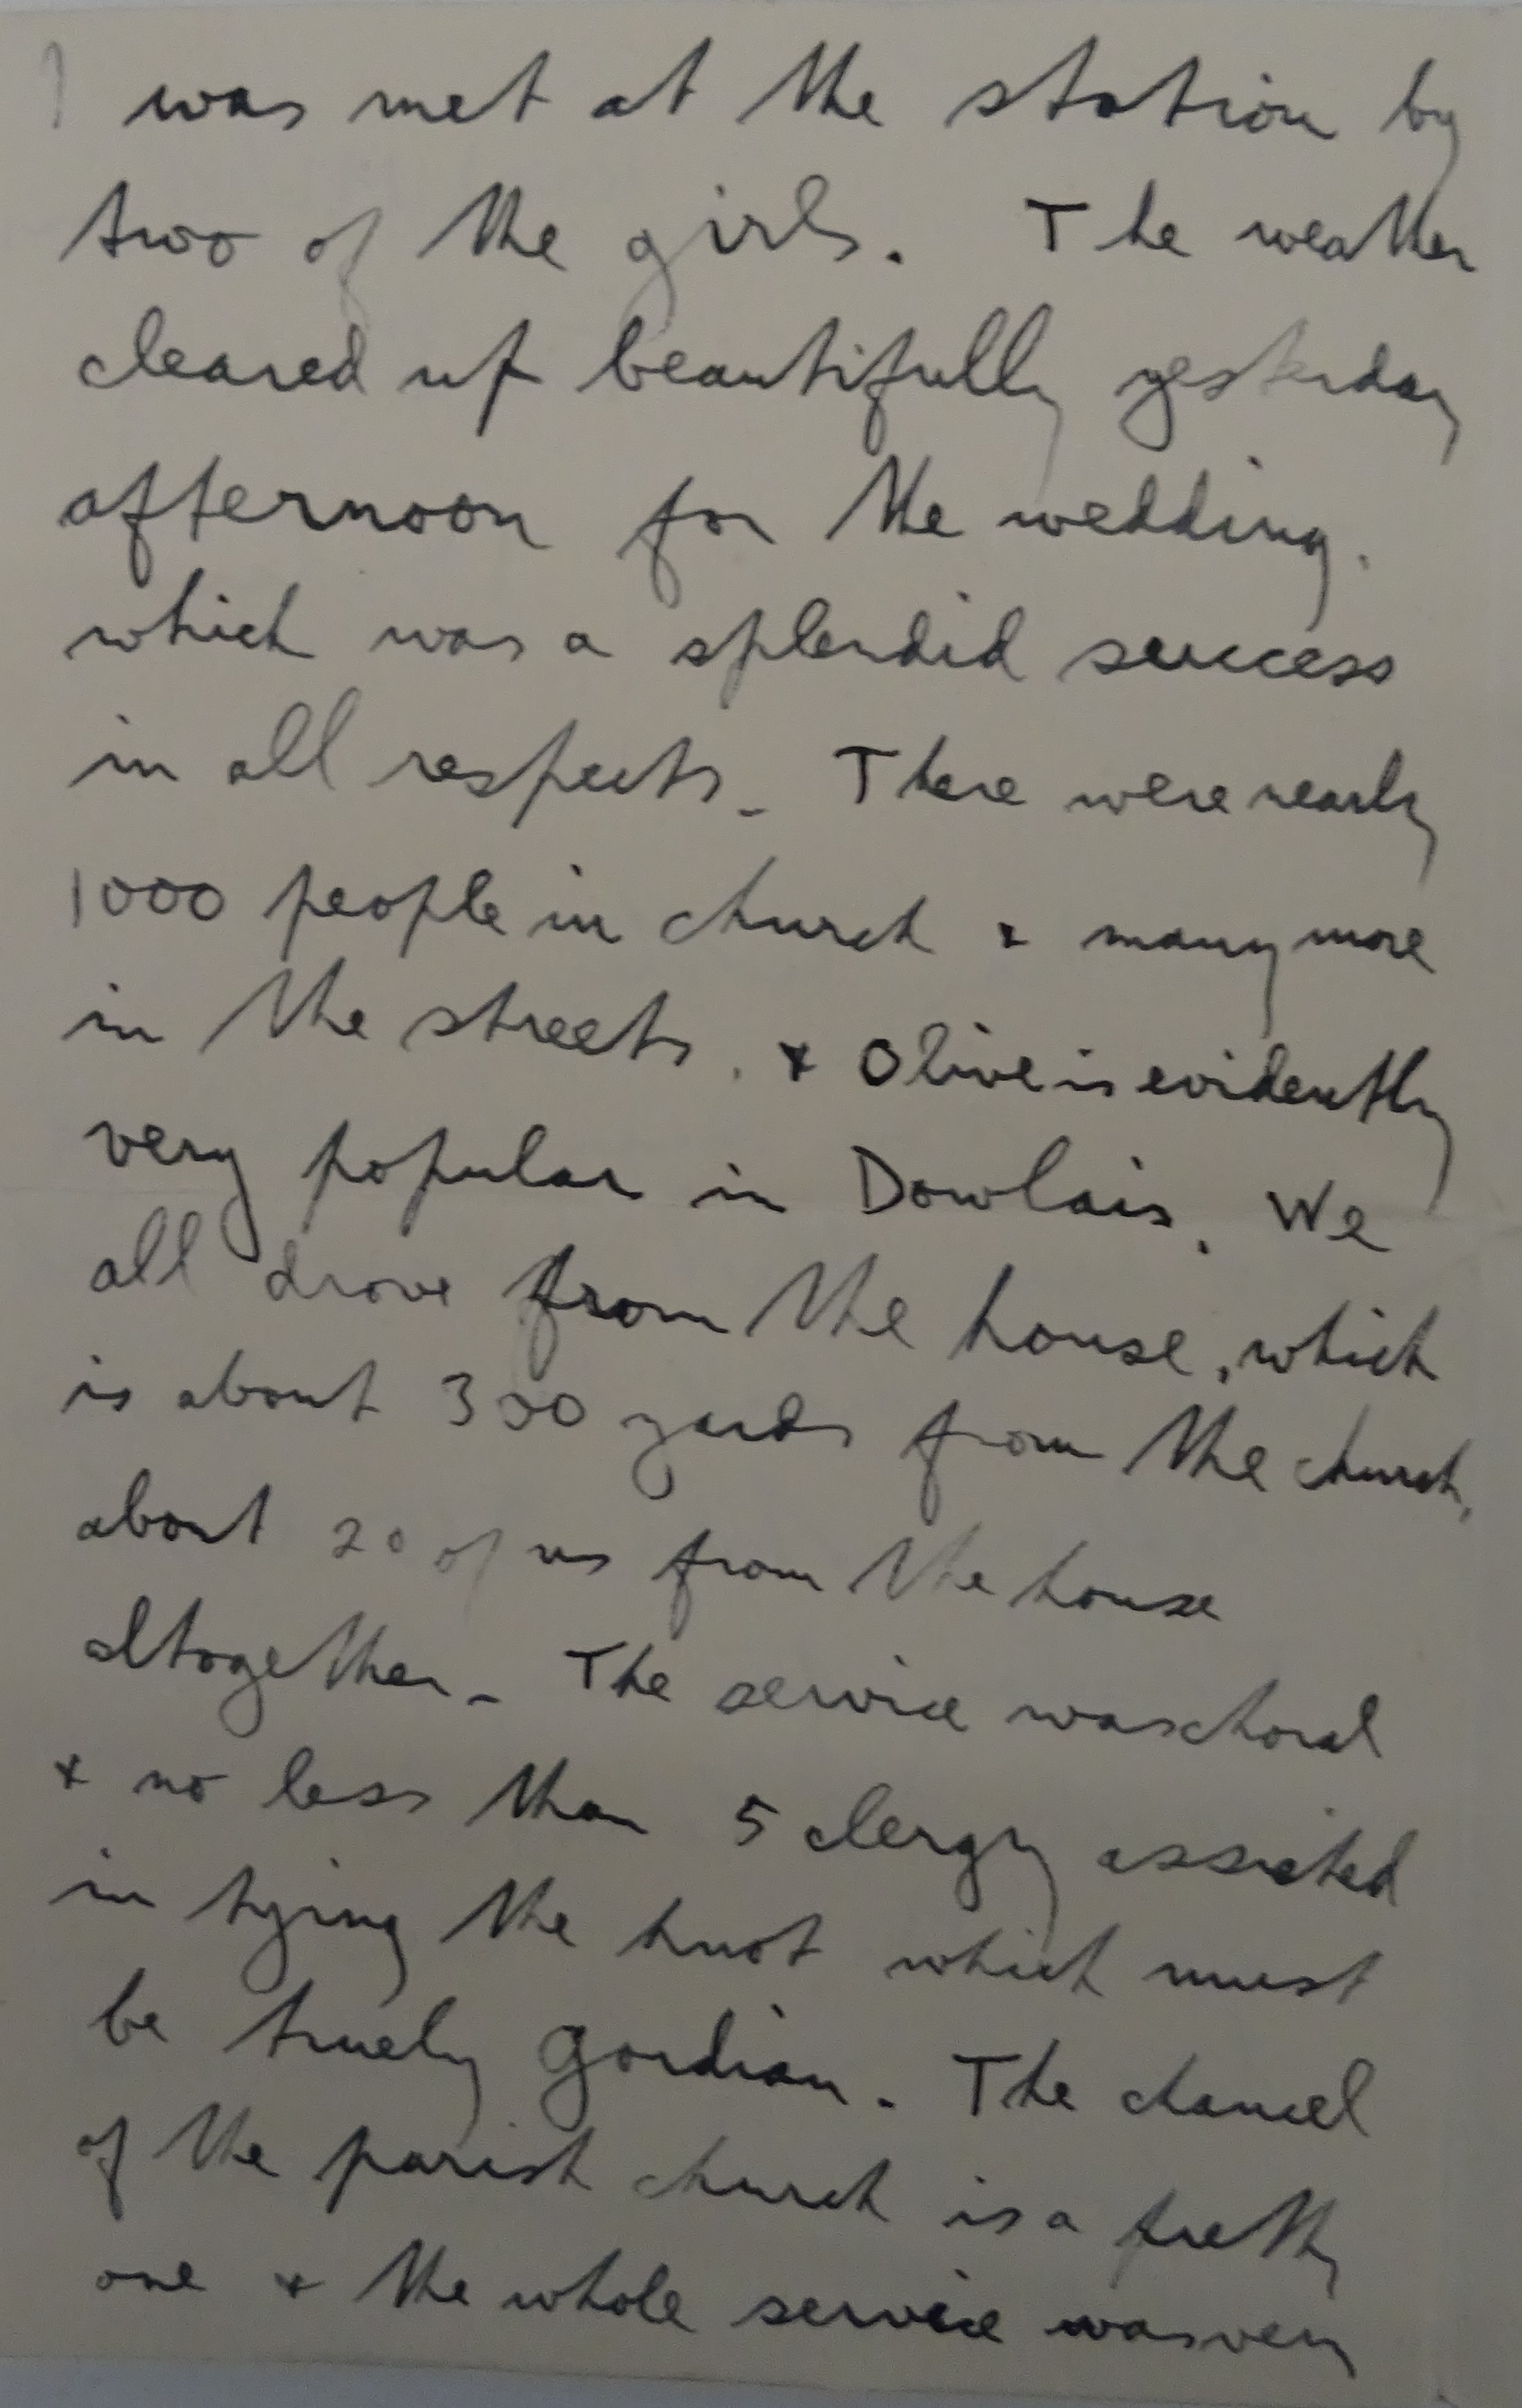 I was met at the station by
two of the girls. The weather
cleared up beautifully yesterday
afternoon for the wedding.
which was a splendid success
in all respects. There were nearly
1000 people in church & many more
in the streets. & Olive is evidently
very popular in Dowlais. We
all drove from the house, which
is about 300 yards from the church,
about 20 of us from the house
altogether. The service was choral
& no less than 5 clergy assisted
in tying the knot which must
be truely gordian. The chancel
of the parish church is a pretty
one & the whole service was very